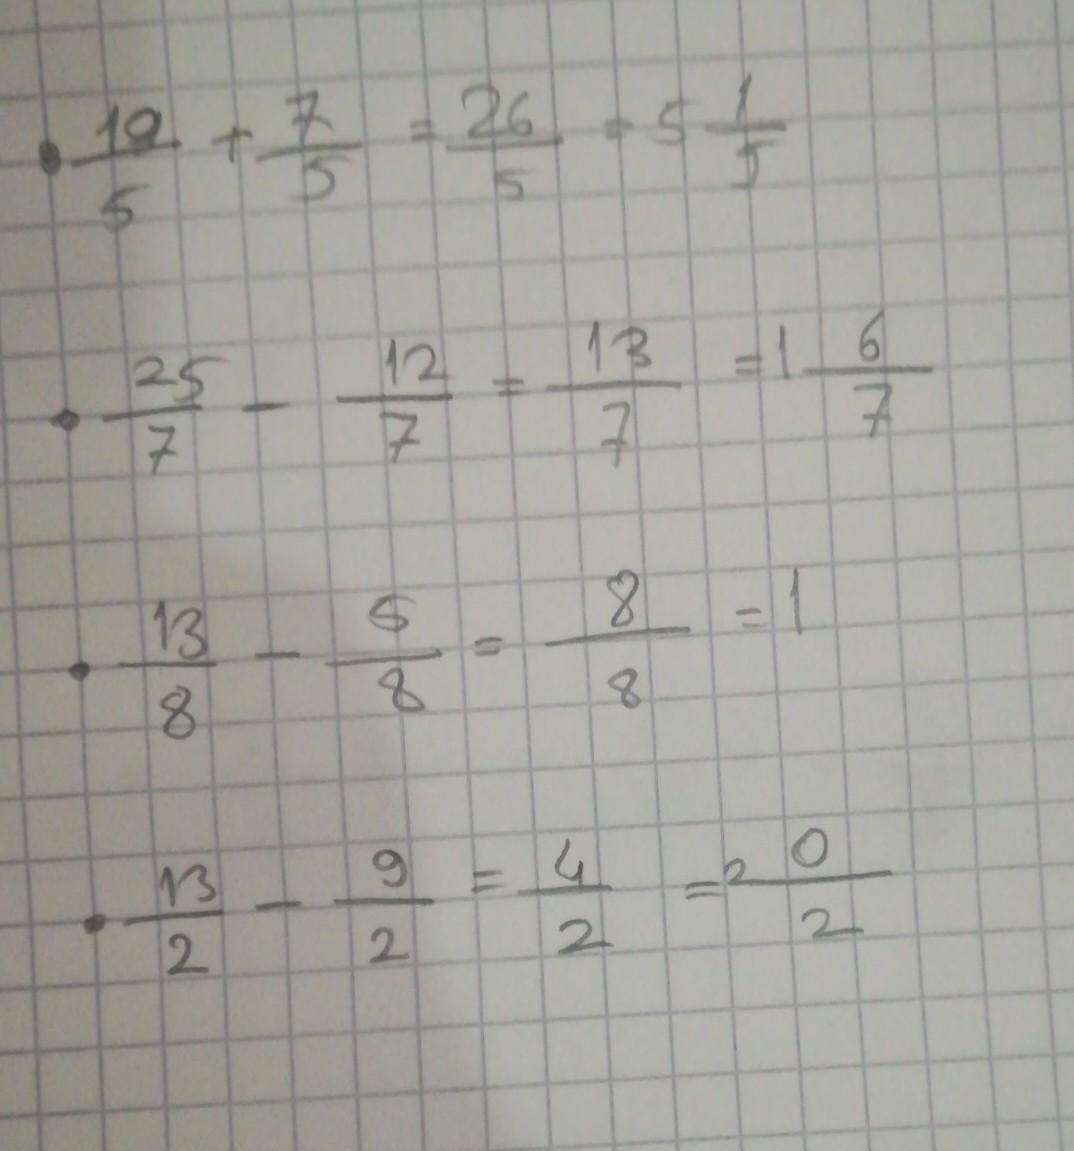 • 19/5 + 7/5 = 26/5 = 5 1/5
• 25/7 - 12/7 = 13/7 = 1 6/7
• 13/8 - 5/8 = 8/8 = 1
• 13/2 - 9/2 = 4/2 = 2 0/2